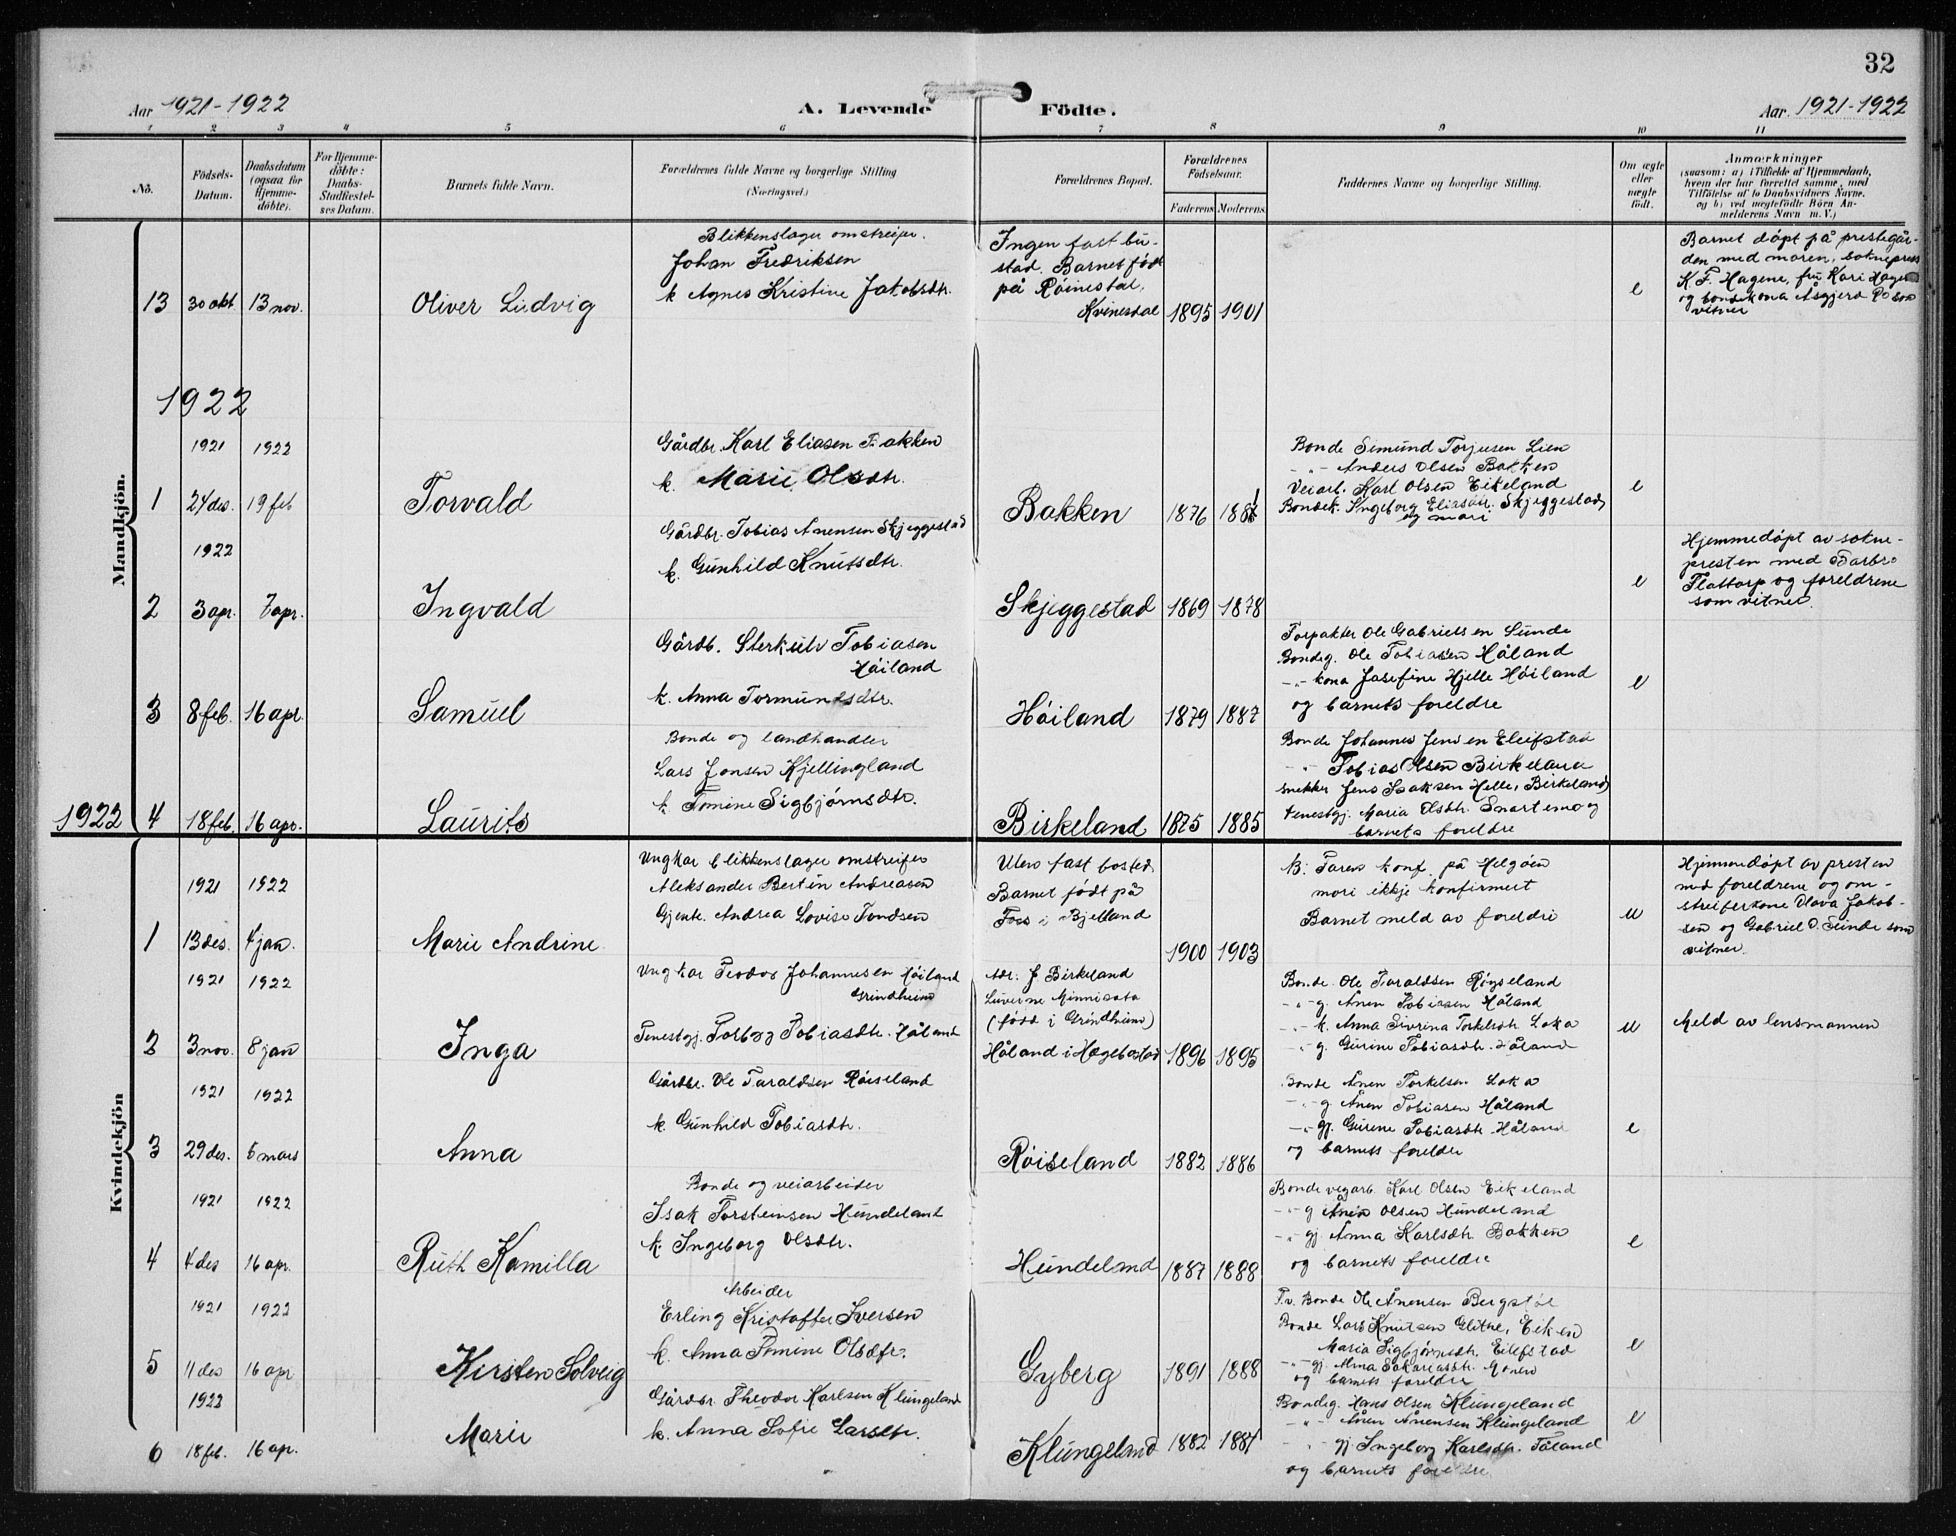 32
Aar 1921-1922
A. Levende Födte.
Aar 1921-1922
1 2 3 4 5 6 7 8 9 10 11
No.
Födsels-
Datum.
Daabsdatum
(ogsaa for
Hjemme-
döbte).
For Hjemme-
döbte:
Daabs-
Stadfæstel-
ses Datum.
Barnets fulde Navn.
Forældrenes fulde Navne og borgerlige Stilling
(Næringsvei.)
Forældrenes Bopæl.
Forældrenes
Födselsaar.
Faderens Moderens
Faddernes Navne og borgerlige Stilling.
Om ægte
eller
uægte
födt.
Anmærkninger
(saasom: a) i Tilfælde af Hjemmedaab,
hvem der har forrettet samme, med
Tilföielse af to Daabsvidners Navne,
og b) ved uægtefödte Börn An-
melderens Navn m. V.)
13
30 okt
13 nov.
Oliver Ludvig
Blikkenslager omstreifer.
Johan Fredriksen
k Agnes Kristine Jakobsdtr.
Ingen fast bu-
stad. Barnet född
på Röinestal,
Kvinesdal
1895 1901
e
Barnet döpt på prestegår-
den med moren, soknepress
K. F. Hagene, fru Kari Hagene
og bondekona Åsgjerd som
vitner
1922
Mandkjön.
1921 1922
1
24 des. 19 feb
Torvald
Gårdbr. Karl Eliasen Bakken
k. Marie Olsdtr.
Bakken
1876 1881
Bonde Simund Torjusen Lien
-"- Anders Olsen Bakken
Veiarb. Karl Olsen Eikeland
Bondek. Ingeborg Eliasdtr. Skjeggestad,
og mori
e
1922
2
3 apr. 7 apr.
Ingvald
Gårdbr. Tobias Ånensen Skjeggestad
k. Gunhild Knutsdtr.
Skjeggestad
1869 1878
e
Hjemmedöpt av sokne-
presten med Barbro
Flottorp og foreldrene
som vitner.
3
8 feb. 16 apr.
Samuel
Gårdb. Sterkulv Tobiasen
Höiland
k. Anna Tormundsdtr.
Höiland
1879 1887
Forpakter Ole Gabrielsen Sunde
Bondeg. Ole Tobiasen Håland
-"- kona Josefine Hjelle Höiland
og barnets foreldre
e
1922
4
18 feb. 16 apr.
Laurits
Bonde og landhandler
Lars Jonsen Kjellingland
k Tomine Sigbjörnsdtr.
Birkeland
1875 1885
Bonde Johannes Jensen Eleifstad
-"- Tobias Olsen Birkeland
snekker Jens Isaksen Helle, Birkeland
tenestgj. Maria Olsdtr. Snartemo og
barnets foreldre
Kvindekjön
1921 1922
1
13 des. 4 jan.
Marie Andrine
Ungkar blikkenslager omstreifer
Aleksander Bertin Andreasen
Gjente. Andrea Lovise Tondsen
Uten fast bosted.
Barnet födt på
Foss i Bjelland
1900 1903
Faren konf. på Helgöen
mori ikkje konfirmert
Barnet meld av foreldri
u
Hjemmedöpt av presten
med foreldrene og om-
streiferkone Olava Jakob-
sen og Gabriel O. Sunde som
vitner.
1921 1922
2
3 nov. 8 jan
Inga
Ungkar Teodor Johannesen Höiland
Grindheim
Tenestgj. Torbjg Tobiasdtr. Håland
Adr. J Birkeland
Luverne Minnisota
(född i Grindheim)
Håland i Hægebostad
1896 1895
Bonde Ole Taraldsen Röyseland
-"- g. Ånen Tobiasen Håland
-"- k. Anna Sivrina Torkelsdtr Loka
-"- g. Gurine Tobiasdtr. Håland
u
Meld av lensmannen
1921 1922
3
29 des. 5 mars
Anna
Gårdbr. Ole Taraldsen Röiseland
k. Gunhild Tobiasdtr.
Röiseland
1882 1886
Bonde Ånen Torkelsen Loka
-"- g Ånen Tobiasen Håland
-"- gj. Gurine Tobiasdtr Håland
og barnets foreldre
e
1921 1922
4
4 des 16 apr.
Ruth Kamilla
Bonde og veiarbeider
Isak Torsteinsen Hundeland
k. Ingeborg Olsdtr.
Hundeland
1887 1888
Bonde vegarb Karl Olsen Eikeland
-"- g Ånen Olsen Hundeland
-"- gj Anna Karlsdtr Bakken
og barnets foreldre
e
1921 1922
5
11 des 16 apr
Kirsten Solveig
Arbeider
Erling Kristoffer Iversen
k. Anna Tomine Olsdtr.
Gyberg
1891 1888
F.v. Bonde Ole Ånensen Bergstöl
Bonde Lars Knutsen Glitre, Eiken
Maria Sigbjörnsdtr. Eilefstad
-"- gj. Alma Sakariasdtr. Moren
og barnets foreldre
e
1922
6
18 feb. 16 ap.
Marie
Gårdbr. Theodor Karlsen Klungeland
k. Anna Sofie Larsdtr.
Klungeland
1882 1887
Bondeg. Hans Olsen Klungeland
-"- Ånen Ånensen Klungeland
-"- gj Ingeborg Karlsdtr. Tåland
og barnets foreldre
e